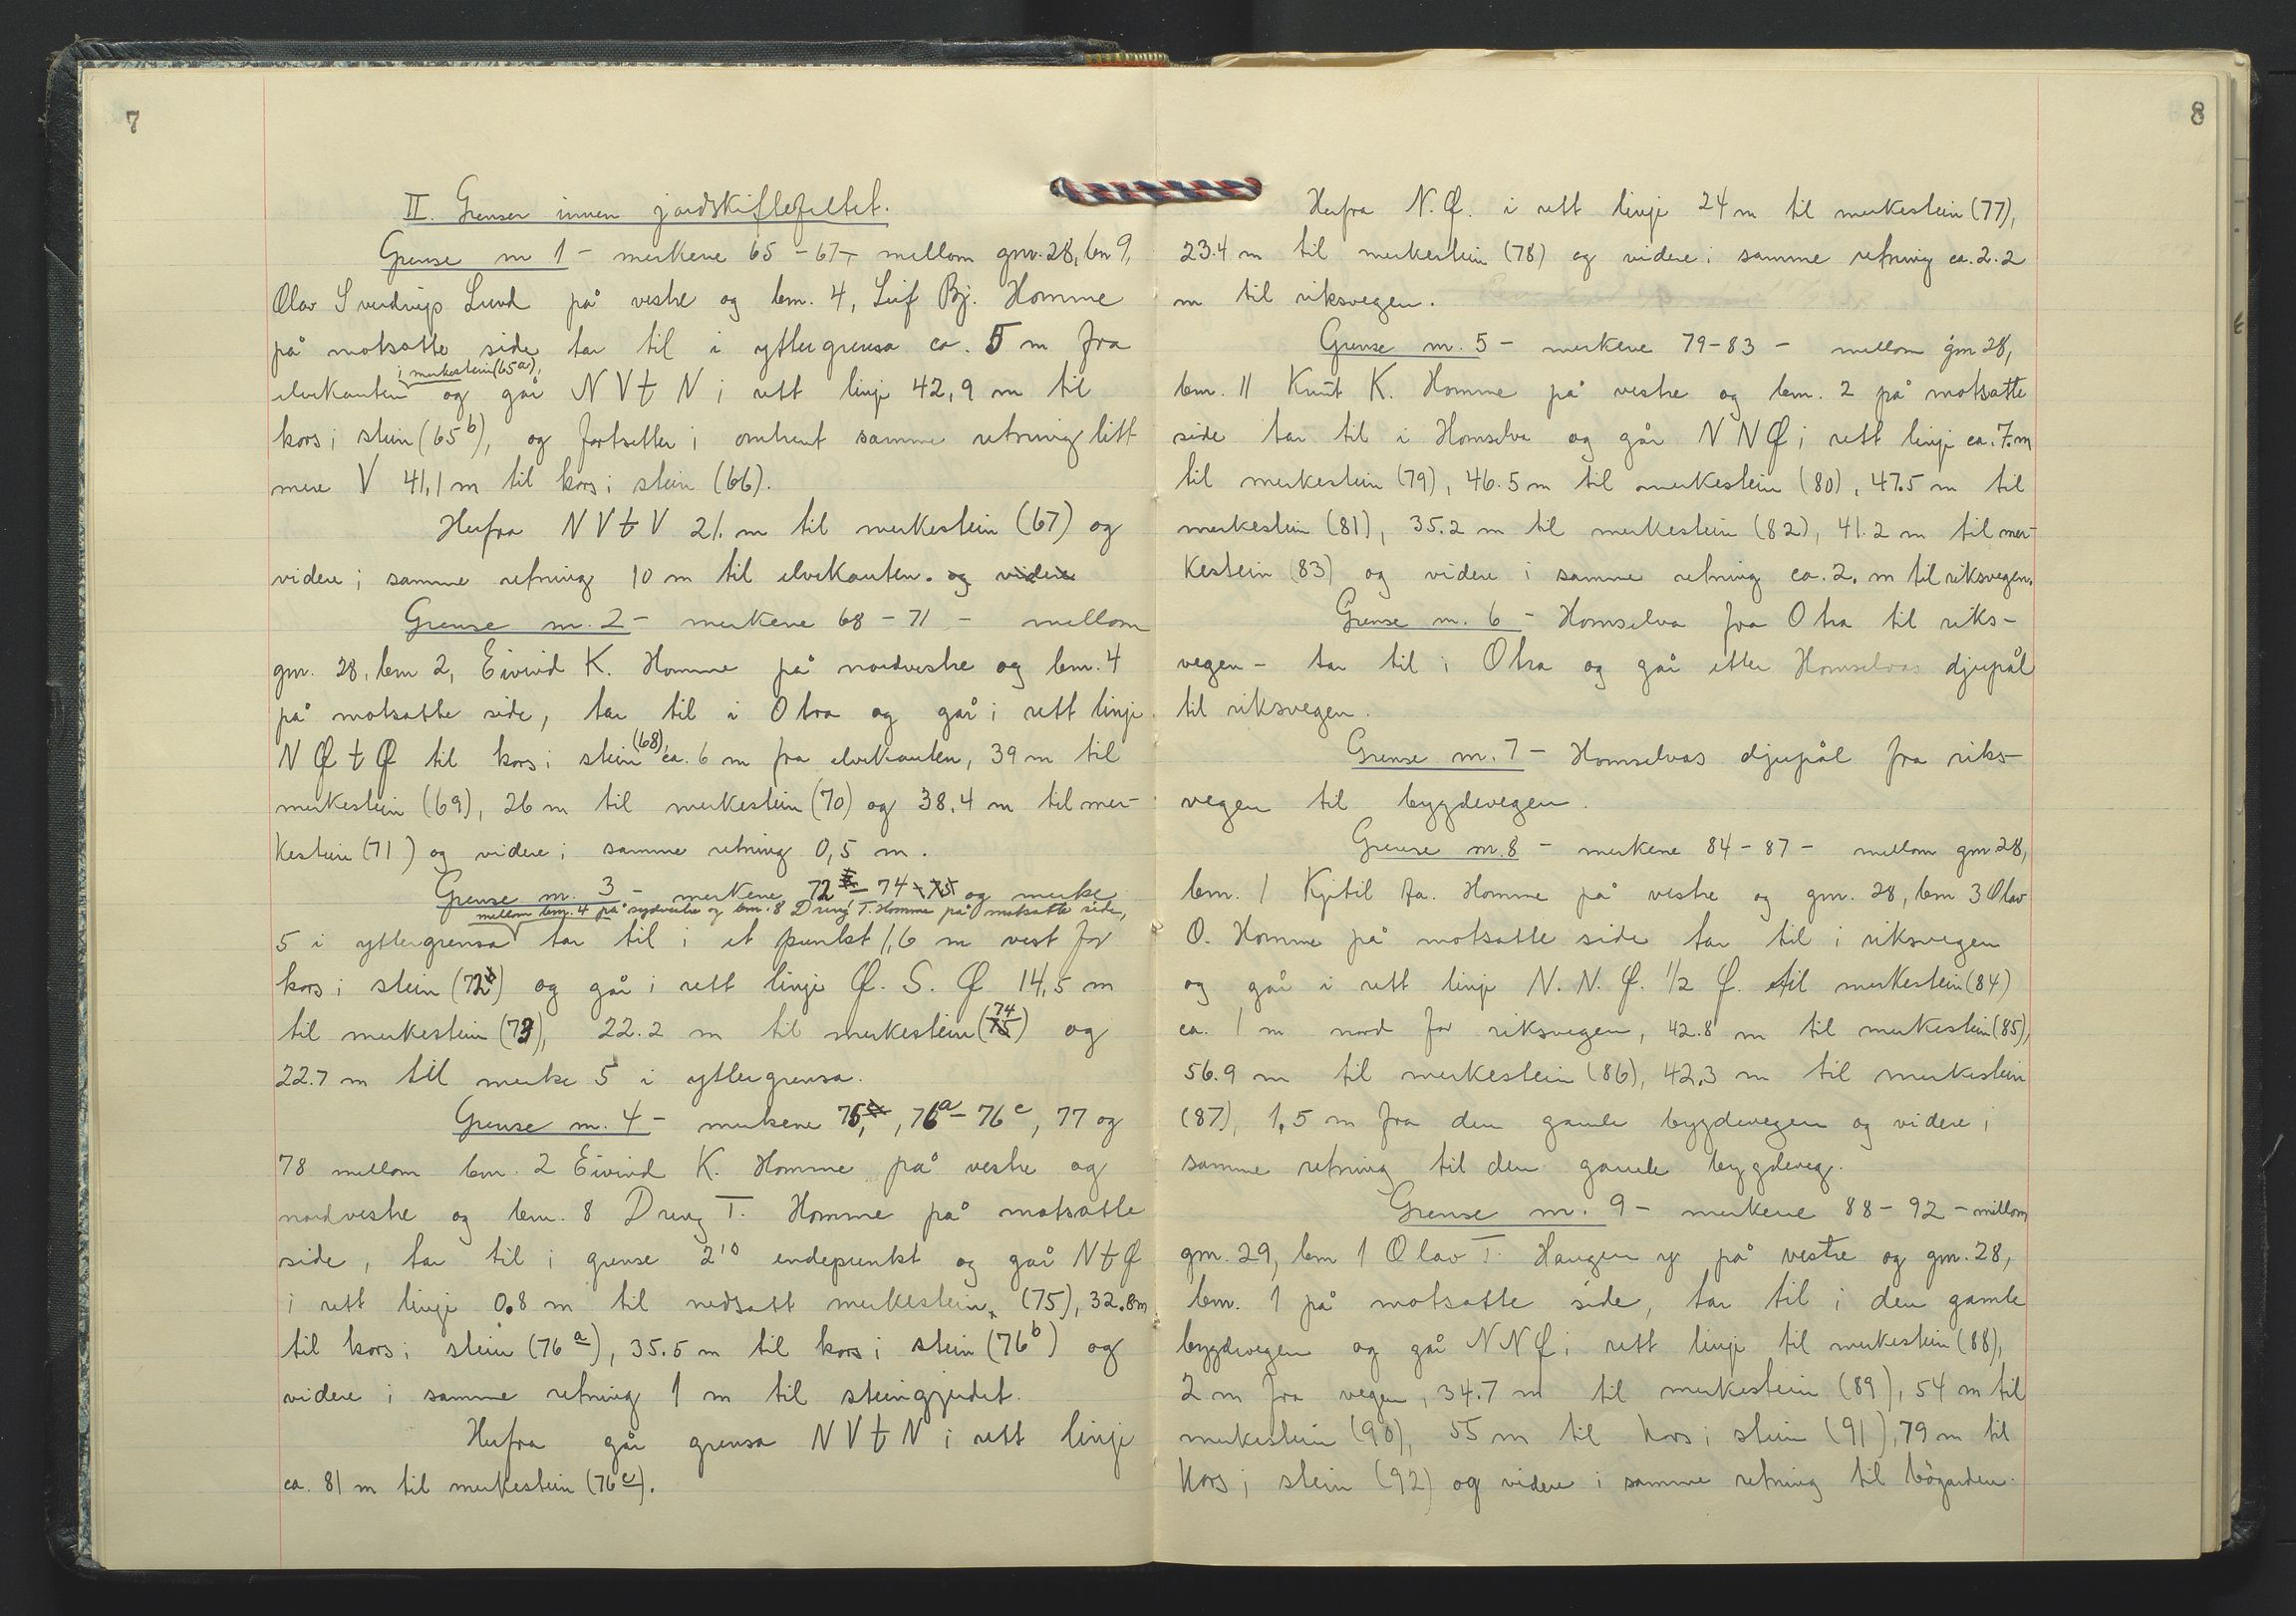 7
II. Grenser innen jordskiftefeltet.
Grense nr 1 - merkene 65 - 67, mellom gnr. 28, bnr 9,
Olav Sverdrup Lund på vestre og bnr. 4, Leif Bj. Homme
på motsatte side tar til i yttergrensa ca. 5 m fra
i merkestein (65a),
elvekanten og går NVtN i rett linje 42,9 m til
kors i stein (65b), og fortsetter i omtrent samme retning litt
mere V 41,1 m til kors i stein (66).
Herfra NVtV 21. m til merkestein (67) og
videre i samme retning 10 m til elvekanten. og videre
Grense nr. 2 - merkene 68 - 71 - mellom
gnr. 28, bnr 2, Eivind K. Homme på nordvestre og bnr. 4
på motsatte side, tar til i Otra og går i rett linje
NØtØ til kors i stein (68), ca. 6 m fra elvekanten, 39 m til
merkestein (69), 26 m til merkestein (70) og 38,4 m til mer-
kestein (71) og videre i samme retning 0,5 m.
Grense nr. 3 - merkene 72 - 74 - 75 og merke
mellom bnr. 4 på sydvestre og bnr. 8 Dreng T. Homme på motsatte side,
5 i yttergrensa tar til i et punkt 1,6 m vest for
kors i stein (72) og går i rett linje Ø. S. Ø 14,5 m
til merkestein (73), 22.2 m til merkestein (74) og
22.7 m til merke 5 i yttergrensa.
Grense nr. 4 - merkene 75, 76a - 76c, 77 og
78 mellom bnr. 2 Eivind K. Homme på vestre og
nordvestre og bnr. 8 Dreng T. Homme på motsatte
side, tar til i grense 2's endepunkt og går NtØ
i rett linje 0.8 m til nedsatt merkestein, (75), 32.8 m
til kors i stein (76a), 35.5 m til kors i stein (76b) og
videre i samme retning 1 m til steingjerdet.
Herfra går grensa NVtN i rett linje
ca. 81 m til merkestein (76c).
8
Herfra N.Ø. i rett linje 24 m til merkestein (77),
23.4 m til merkestein (78) og videre i samme retning ca. 2.2
m til riksvegen.
Grense nr. 5 - merkene 79-83 - mellom gnr 28,
bnr. 11 Knut K. Homme på vestre og bnr. 2 på motsatte
side tar til i Homselva og går NNØ i rett linje ca. 7. m
til merkestein (79), 46.5 m til merkestein (80), 47.5 m til
merkestein (81), 35.2 m til merkestein (82), 41.2 m til mer-
kestein (83) og videre i samme retning ca. 2. m til riksvegen.
Grense nr. 6 - Homselva fra Otra til riks-
vegen - tar til i Otra og går etter Homselvas djupål
til riksvegen.
Grense nr. 7 - Homselvas djupål fra riks-
vegen til bygdevegen.
Grense nr. 8 - merkene 84 - 87 - mellom gnr 28,
bnr. 1 Kjetil Aa. Homme på vestre og gnr. 28, bnr 3 Olav
O. Homme på motsatte side tar til i riksvegen
og går i rett linje N. N. Ø. 1/2 Ø. til merkestein (84)
ca. 1 m nord for riksvegen, 42.8 m til merkestein (85),
56.9 m til merkestein (86), 42.3 m til merkestein
(87), 1,5 m fra den gamle bygdevegen og videre i
samme retning til den gamle bygdeveg.
Grense nr. 9 - merkene 88 - 92 - mellom
gnr. 29, bnr 1 Olav T. Haugen yr på vestre og gnr. 28,
bnr. 1 på motsatte side, tar til i den gamle
bygdevegen og går NNØ i rett linje til merkestein (88),
2 m fra vegen, 34.7 m til merkestein (89), 54 m til
merkestein (90), 55 m til kors i stein (91), 79 m til
kors i stein (92) og videre i samme retning til bøgarden.